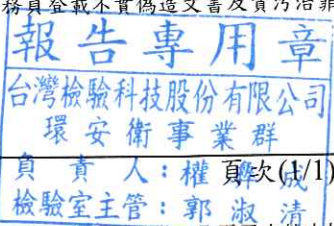 務員登載不實偽造文書及貪污治罪
報告專用章
台灣檢驗科技股份有限公司
環安衛事業群
負責人：權彝成
頁次(1/1)
檢驗室主管：郭淑清